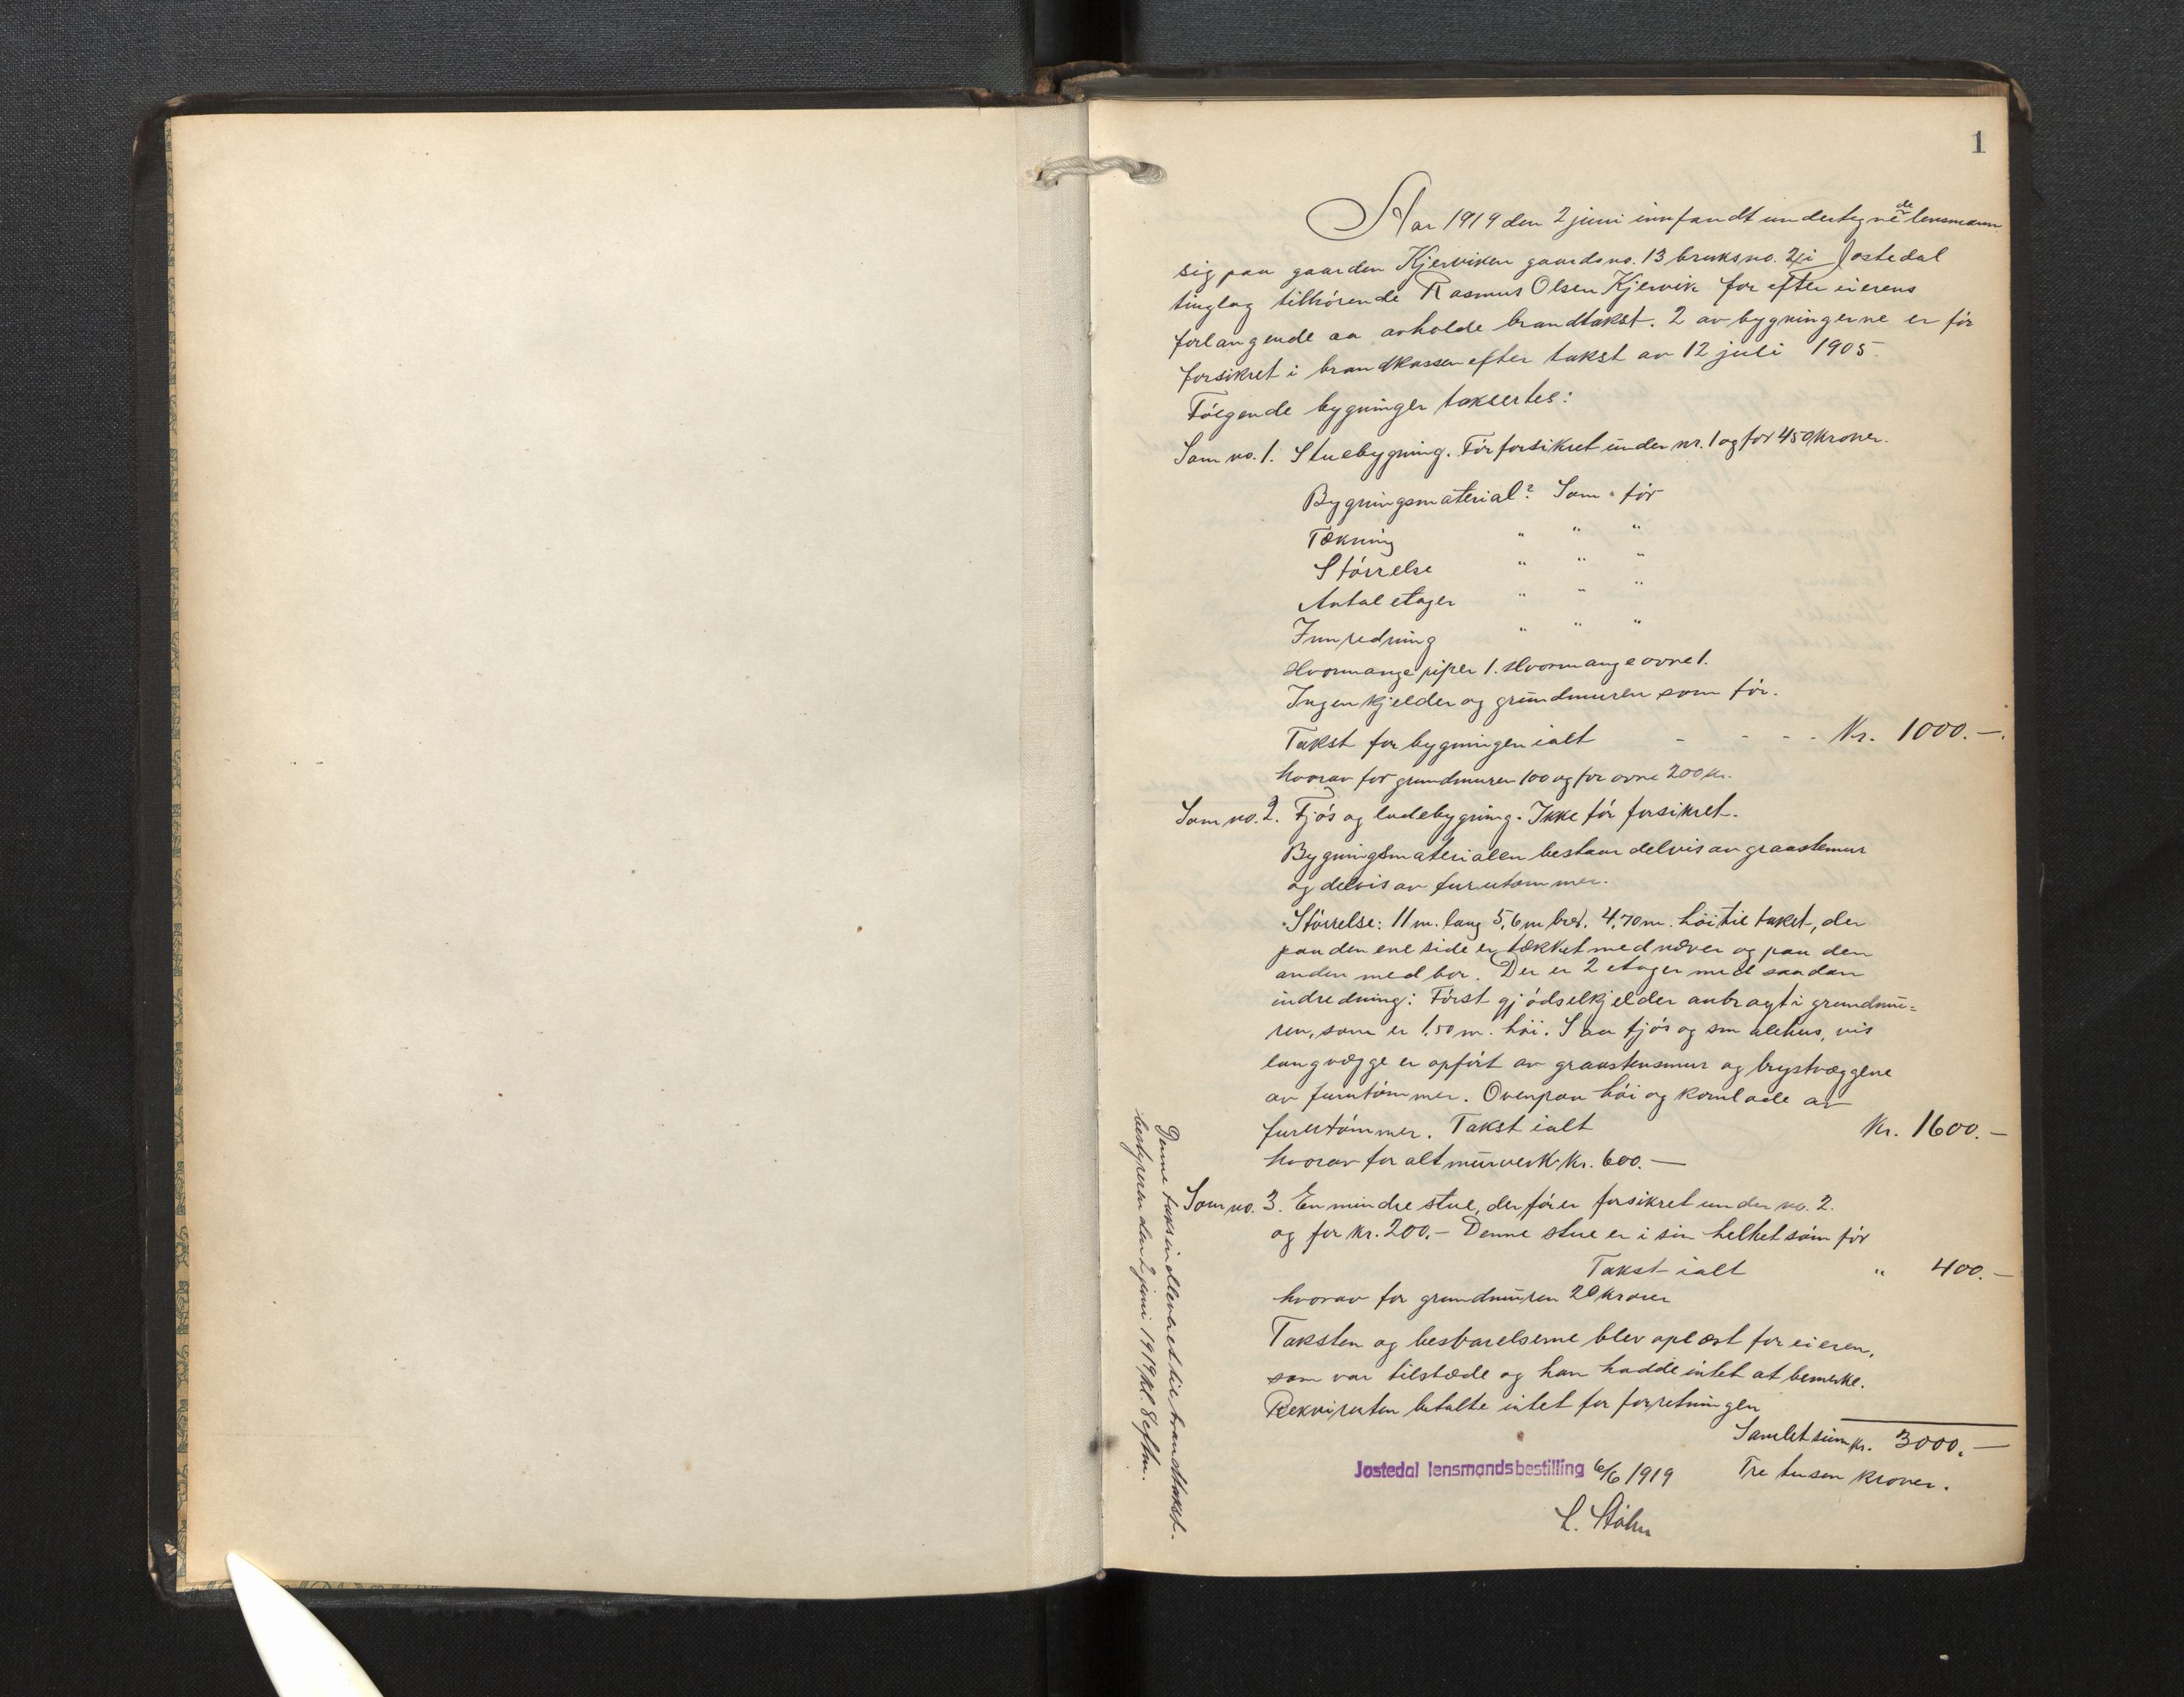 1
Aar 1919 den 2 juni innfandt undertegnede lensmann
sig paa gaarden Kjerviken gaardsno. 13 bruksno. 2 i Jostedal
tinglag tilhörende Rasmus Olsen Kjervik for efter eierens
forlangende aa avholde brandtakst. 2 av bygningerne er för
forsikret i brandkassen efter takst av 12 juli 1905.
Fölgende bygninger taksertes:
Som no. 1. Stuebygning. För forsikret under nr. 1 og for 450 kroner.
Bygningsmaterial? Som för
Tækning " " "
Störrelse " " "
Antal etager " " "
Innredning " " "
Hvormange piper 1. Hvormange ovne 1.
Ingen kjelder og grundmuren som för.
Takst for bygningen ialt - - - - Kr. 1000.-.
hvorav for grundmuren 100 og for ovne 200 kr.
Som no. 2. Fjös og ladebygning. Ikke för forsikret.
Bygningsmaterialen bestaar delvis av graastenmur
og delvis av furutömmer.
Störrelse: 11 m. lang 5,6 m bred. 4,70 m. höi til taket, der
paa den ene side er tækket med næver og paa den
anden med bor. Der er 2 etager med saadan
indredning: Först gjödselkjelder anbragt i grundmu=
ren, som er 1.50 m. höi. Saa fjös og smalehus, vis
langvægge er opfört av graastensmur og brystvæggene
av furutömmer. Ovenpaa höi og kornlade av
furutömmer. Takst ialt Kr. 1600.-
hvorav for alt murverk kr. 600.-
Som no. 3. En mindre stue, der för er forsikret under no. 2.
og for kr. 200.- Denne stue er i sin helhet som för
Takst ialt " 400.-
hvorav for grundmuren 20 kroner
Taksten og besvarelserne blev oplæst for eieren,
som var tilstæde og han hadde intet at bemerke.
Rekvirenten betalte intet for forretningen
Samlet sum kr. 3000.-
Jostedal lensmandsbestilling 6/6 1919 Tre tusen kroner.
Denne takst indleveret til brandtakst-
bestyreren den 2 juni 1919 kl. 8 eftm.